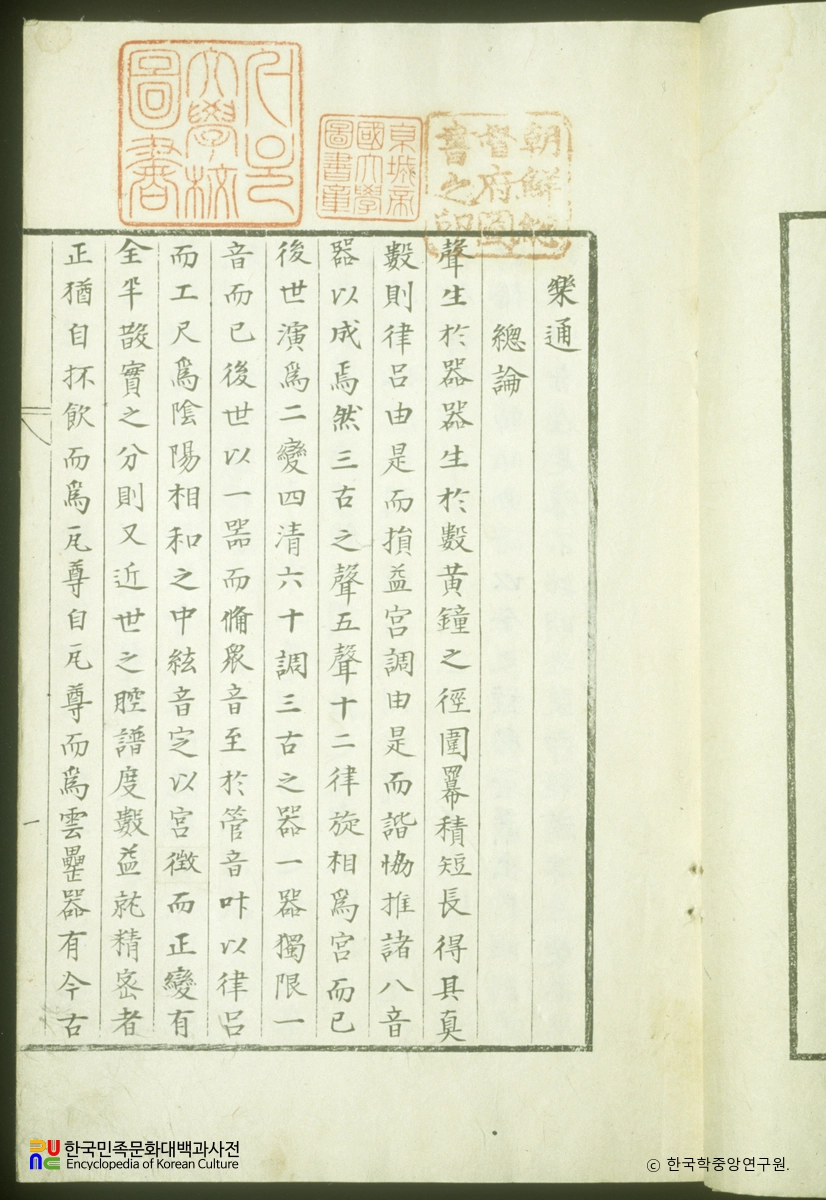 朝鮮総
督府圖
書之印
京城帝
國大學
圖書章
서울
大學校
圖書
樂通
總論
聲生於器器生於數黃鐘之徑圍羃積短長得其眞
數則律呂由是而損益宮調由是而諧恊推諸八音
器以成焉然三古之聲五聲十二律旋相爲宮而已
後世演爲二變四清六十調三古之器一器獨限一
音而已後世以一器而俻衆音至於管音吽以律呂
而工尺爲陰陽相和之中絃音定以宮徵而正變有
全半散實之分則又近世之腔譜度數益就精密者
正猶自抔飮而爲瓦尊自瓦尊而爲雲罍器有今古
一
한국민족문화대백과사전
Encyclopedia of Korean Culture
© 한국학중앙연구원.